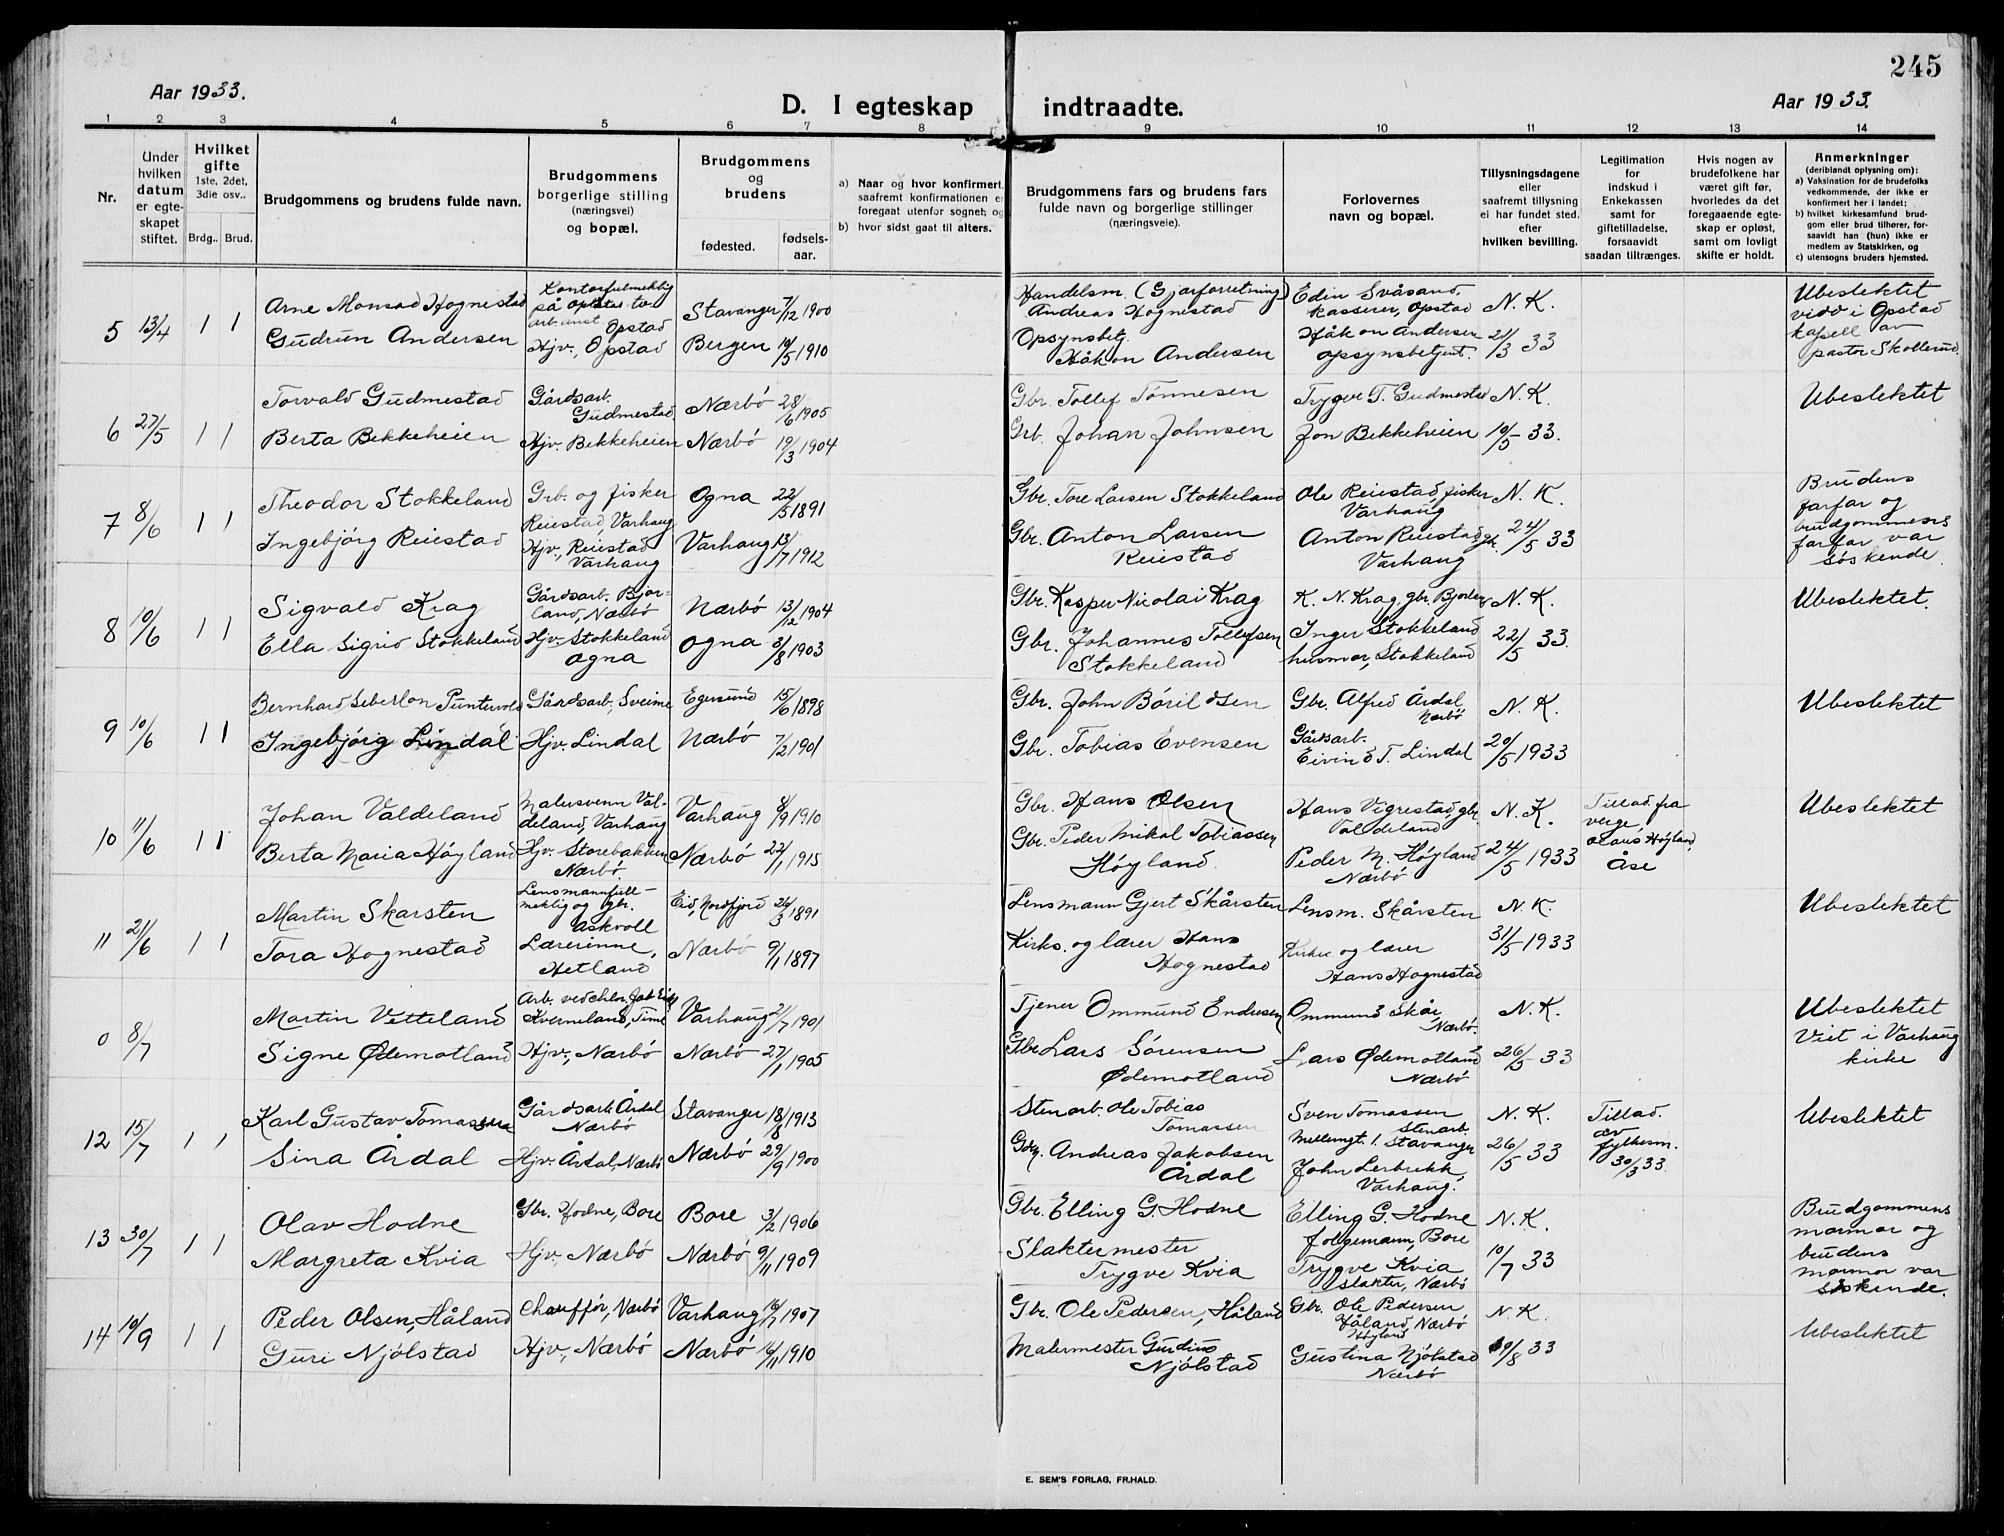 245
Aar 1933.
D. I egteskap indtraadte.
Aar 1933.
1 2 3 4 5 6 7 8 9 10 11 12 13 14
Nr.
Under hvilken datum er egteskapet stiftet.
Hvilket gifte
1ste, 2det, 3die osv..
Brdg.. Brud.
Brudgommens og brudens fulde navn.
Brudgommens borgerlige stilling (næringsvei) og bopæl.
Brudgommens og brudens
fødested.
fødsels-aar.
a) Naar og hvor konfirmert,
saafremt konfirmationen er
foregaat utenfor sognet; og
b) hvor sidst gaat til alters.
Brudgommens fars og brudens fars
fulde navn og borgerlige stillinger
(næringsveie).
Forlovernes
navn og bopæl.
Tillysningsdagene
eller
saafremt tillysning
ei har fundet sted.
efter
hvilken bevilling.
Legitimation
for
indskud i
Enkekassen
samt for
giftetilladelse,
forsaavidt
saadan tiltrænges.
Hvis nogen av
brudefolkene har
været gift før,
hvorledes da det
foregaaende egte-
skap er opløst,
samt om lovligt
skifte er holdt.
Anmerkninger
(deriblandt oplysning om):
a) Vaksination for de brudefolks
vedkommende, der ikke er
konfirmert her i landet;
b) hvilket kirkesamfund brud-
gom eller brud tilhører, for-
saavidt han (hun) ikke er
medlem av Statskirken, og
c) utensogns bruders hjemsted.
5 13/4 1 1
Arne Monsad Hognestad
Kontorfulmektig på Opstad tv. arb. anst. Opstad
Stavanger 7/12 1900
Handelsm. (Gjærforretning) Andreas Hognestad
Edin Svåsand, kasserer, Opstad
N. K.
Gudrun Andersen
Hjv., Opstad
Bergen 19/5 1910
Opsynsbetj. Håkon Andersen
Håkon Andersen opsynsbetjent.
21/3 33
Ubeslektet
viet i Opstad
kapell av
pastor Skollerud.
6 27/5 1 1
Torvald Gudmestad
Gårdsarb. Gudmestad
Nærbö 28/6 1905
Gbr. Tollef Tönnesen
Trygve T. Gudmestad
N. K.
Berta Bekkeheien
Hjv. Bekkeheien
Nærbö 19/3 1904
Grb. Johan Johnsen
Jon Bekkeheien
10/5 33.
Ubeslektet
7 8/6 1 1
Theodor Stokkeland
Grb. og fisker Reiestad, Varhaug
Ogna 22/5 1891
Gbr. Tore Larsen Stokkeland
Ole Reiestad, fisker Varhaug
N. K.
Ingebjörg Reiestad
Hjv., Reiestad Varhaug
Varhaug 13/7 1912
Gbr. Anton Larsen Reiestad
Anton Reiestad, gbr. Varhaug
24/5 33
Brudens
farfar og
brudgommens
farfar var
söskende.
8 10/6 1 1
Sigvald Krag
Gårdsarb. Bjorland, Nærbö
Nærbö 13/12 1904
Gbr. Kasper Nicolai Krag
K. N. Krag, gbr. Bjorland
N. K.
Ella Sigrid Stokkeland
Hjv. Stokkeland Ogna
Ogna 3/8 1903
Gbr. Johannes Tollefsen Stokkeland
Inger Stokkeland husmor, Stokkeland
22/5 33.
Ubeslektet.
9 10/6 1 1
Bernhard Puntervold
Gårdsarb., Sveime
Egersund 15/6 1898
Gbr. John Börildsen
Gbr. Alfred Årdal Nærbö
N. K.
Ingebjörg Lindal
Hjv. Lindal
Nærbö 7/2 1901
Gbr. Tobias Evensen
Gårdsarb. Eivind T. Lindal
20/5 1933
Ubeslektet
10 11/6 1 1
Johan Valdeland
Malersvenn Valdeland, Varhaug
Varhaug 8/9 1910
Gbr. Hans Olsen
Hans Vigrestad, gbr. Valdeland
N. K.
Berta Maria Höyland
Hjv. Storebakken Nærbö.
Nærbö 22/1 1915
Gbr. Peder Mikal Tobiassen Höyland.
Peder M. Höyland Nærbö
24/5 1933
Tillad. fra
verge,
Olaus Höyland,
Åse
Ubeslektet
11 21/6 1 1
Martin Skarsten
Lensmannfullmektig og gbr. Askvoll
Eid, Nordfjord 24/3 1891
Lensmann Gjert Skårsten
Lensm. Skårsten
N. K.
Tora Hognestad
Lærerinne, Hetland
Nærbö 9/1 1897
Kirks. og lærer Hans Hognestad
Kirks. og lærer Hans Hognestad
31/5 1933
Ubeslektet
0 8/7
Martin Vetteland
Kverneland, Time
Varhaug 21/7 1901
Tjener Ommund Endersen
Ommund Skår, Nærbö.
N. K.
Signe Ödemotland
Hjv., Nærbö
Nærbö 27/1 1905
Gbr. Lars Sörensen Ödemotland
Lars Ödemotland Nærbö
26/5 33
Ubeslektet
Viet i Varhaug
kirke
12 15/7 1 1
Karl Gustav Tomassen
Gårdsarb. Årdal Nærbö
Stavanger 18/8 1913
Stenarb. Ole Tobias Tomassen
Sven Tomassen stenarb. Mellemgt. 1. Stavanger
N. K.
Sina Årdal
Hjv. Årdal, Nærbö
Nærbö 29/9 1900
Gbr. Andreas Jakobsen Årdal
John Lerbrekk, Varhaug.
26/5 33
Tillad.
av
fylkesm.
30/3 33.
Ubeslektet
13 30/7 1 1
Olav Hodne
Gbr. Hodne, Bore
Bore 3/2 1906
Gbr. Elling G. Hodne
Elling G. Hodne folgemann, Bore
N. K.
Margreta Kvia
Hjv. Nærbö
Nærbö 9/11 1909
Slaktermester Trygve Kvia
Trygve Kvia slakter, Nærbö
10/7 33
Brudgommens
mormor og
brudens
mormor var
söskende.
14 10/9 1 1
Peder Olsen, Håland
Chauffør, Nærbö
Varhaug 16/7 1907
Gbr. Ole Pedersen, Håland
Gbr. Ole Pedersen Håland, Nærbö
N. K.
Guri Njölstad
Hjv., Nærbö
Nærbö 16/11 1910
Malermester Gudius Njölstad
Höyland
Gustina Njölstad Nærbö
10/8 33
Ubeslektet
E. SEM'S FORLAG, FR.HALD.